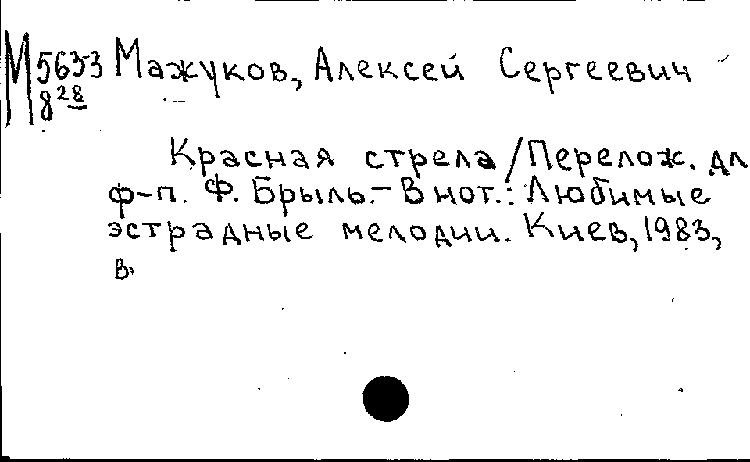 М 5633 Мажуков, Алексей Сергеевич
8 28
Красная стрела / Перелож. дл
ф-п. Ф. Брыль.- В нот.: Любимые
эстрадные мелодии. Киев, 1983,
в.